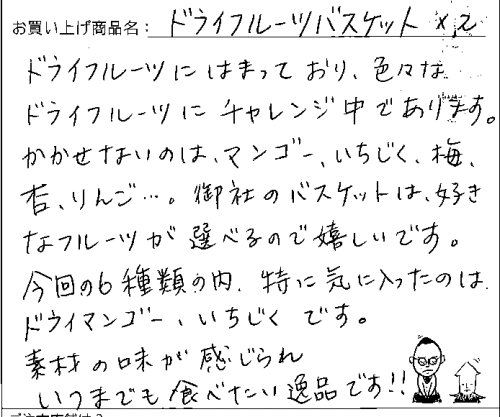 お買い上げ商品名： ドライフルーツバスケット ×2
ドライフルーツにはまっており、色々な
ドライフルーツにチャレンジ中であります。
かかせないのは、マンゴー、いちじく、梅、
杏、りんご…。御社のバスケットは、好き
なフルーツが選べるので嬉しいです。
今回の6種類の内、特に気に入ったのは、
ドライマンゴー、いちじくです。
素材の味が感じられ
いつまでも食べたい逸品です!!